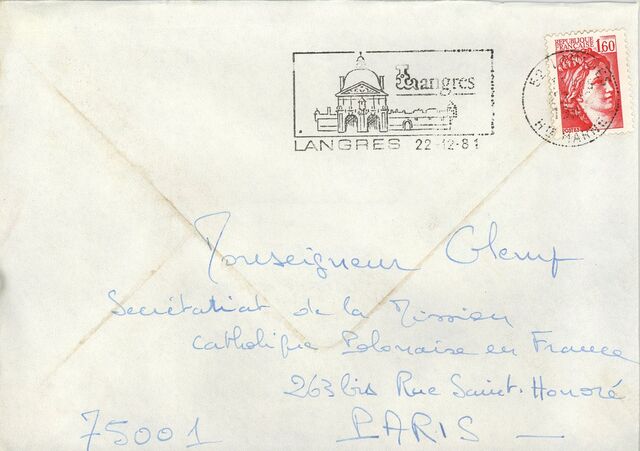 Langres
LANGRES 22-12-81
REPUBLIQUE
FRANÇAISE
1,60
POSTES
52 LANGRES
HTE MARNE
Monseigneur Glemp
Secrétariat de la Mission
Catholique Polonaise en France
263 bis Rue Saint-Honoré
75001 PARIS —